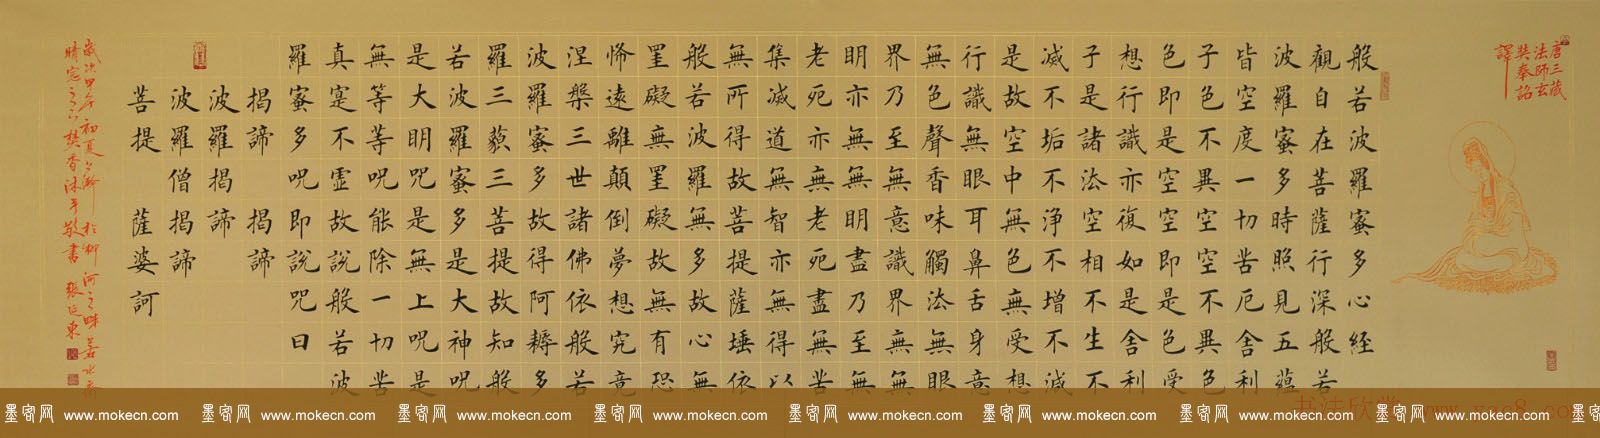 唐三藏
法師玄
奘奉詔
譯
般若波羅蜜多心經
觀自在菩薩行深般若
波羅蜜多時照見五蘊
皆空度一切苦厄舍利
子色不異空空不異色
色即是空空即是色受
想行識亦復如是舍利
子是諸法空相不生不
滅不垢不淨不增不減
是故空中無色無受想
行識無眼耳鼻舌身意
無色聲香味觸法無眼
界乃至無意識界無無
明亦無無明盡乃至無
老死亦無老死盡無苦
集滅道無智亦無得以
無所得故菩提薩埵依
般若波羅無多故心無
罣礙無罣礙故無有恐
怖遠離顛倒夢想究竟
涅槃三世諸佛依般若
波羅蜜多故得阿耨多
羅三藐三菩提故知般
若波羅蜜多是大神咒
是大明咒是無上咒是
無等等咒能除一切苦
真寔不虛故說般若波
羅蜜多咒即說咒曰
揭諦 揭諦
波羅揭諦
波羅僧揭諦
菩提 薩婆訶
歲次甲午初夏 於柳河之畔
晴窗之下焚香沐手敬書 張延東
墨客网 www.mokecn.com 墨客网 www.mokecn.com 墨客网 www.mokecn.com 墨客网 www.mokecn.com 墨客网 www.mokecn.com 墨客网 www.mokecn.com 墨客网 www.mokecn.com 墨客网 www.mokecn.com
书法欣赏